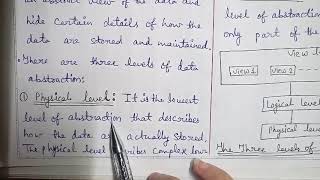 an abstract view of the data and
hide certain details of how the
data are stored and maintained.
There are three levels of data
abstraction:
① Physical level: It is the lowest
level of abstraction that describes
how the data are actually stored.
The physical level describes complex low-
level of abstraction
only part of the
View
view 1
view 2
Logical
Physical
The Three levels of